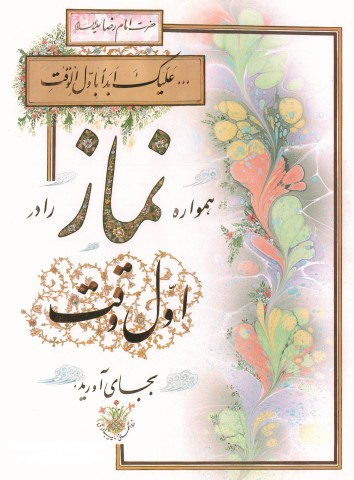 حضرت امام رضا علیه‌السلام
... علیک ابداً باول الوقت
همواره نماز را در
اول وقت
بجای آورید.